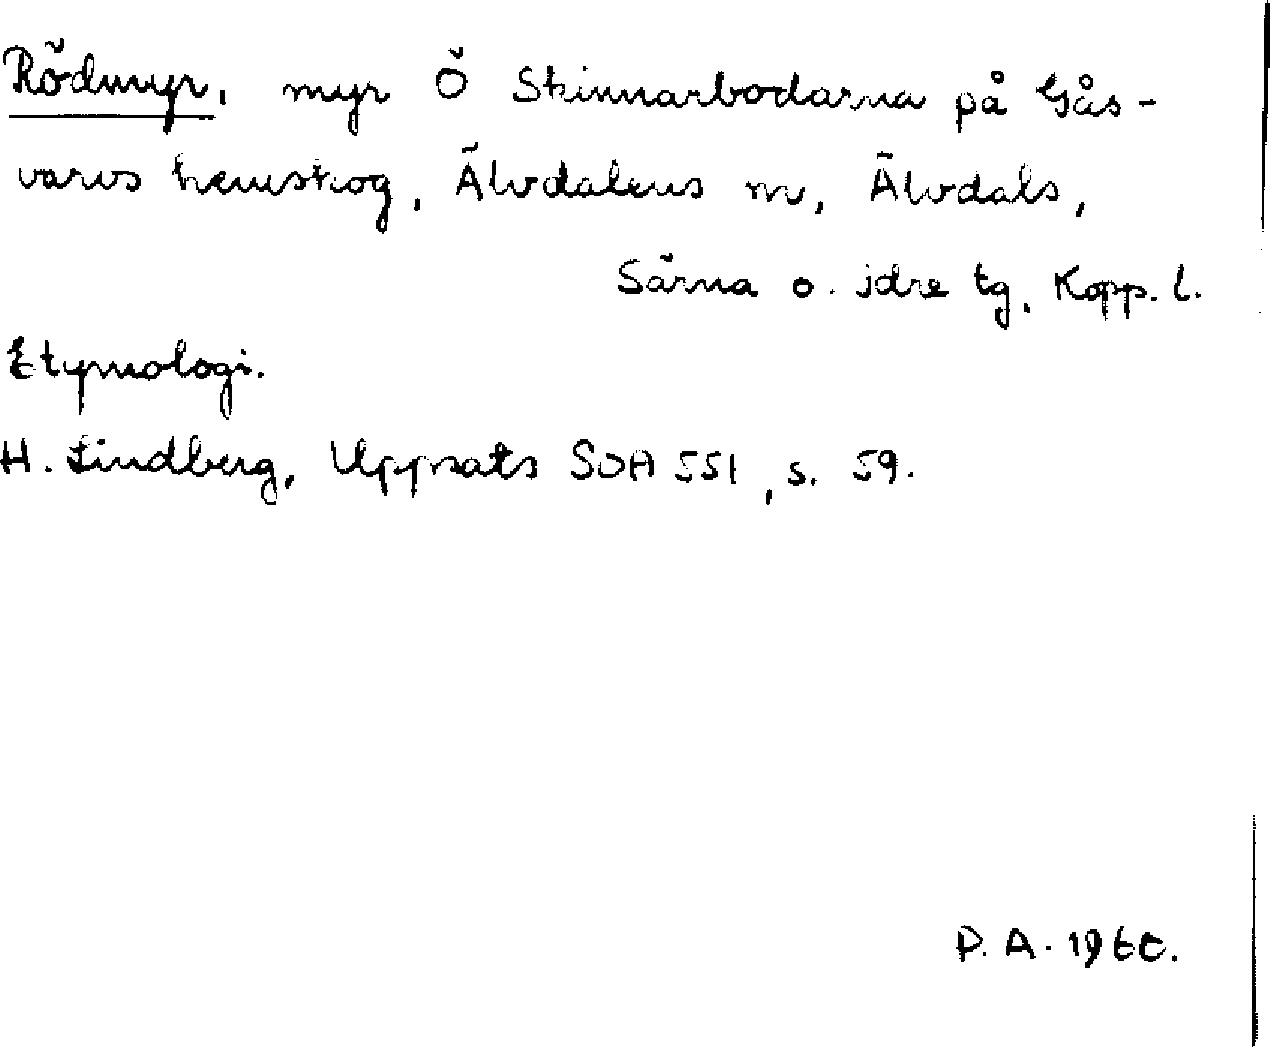 Rödmyr, myr Ö Skinnarbodarna på Gås-
varvs hemskog, Älvdalens sn, Älvdals,
Särna o. Idre tg, Kopp. l.
Etymologi.
H. Lindberg, Uppsats SOA 551, s. 59.
P. A. 1960.